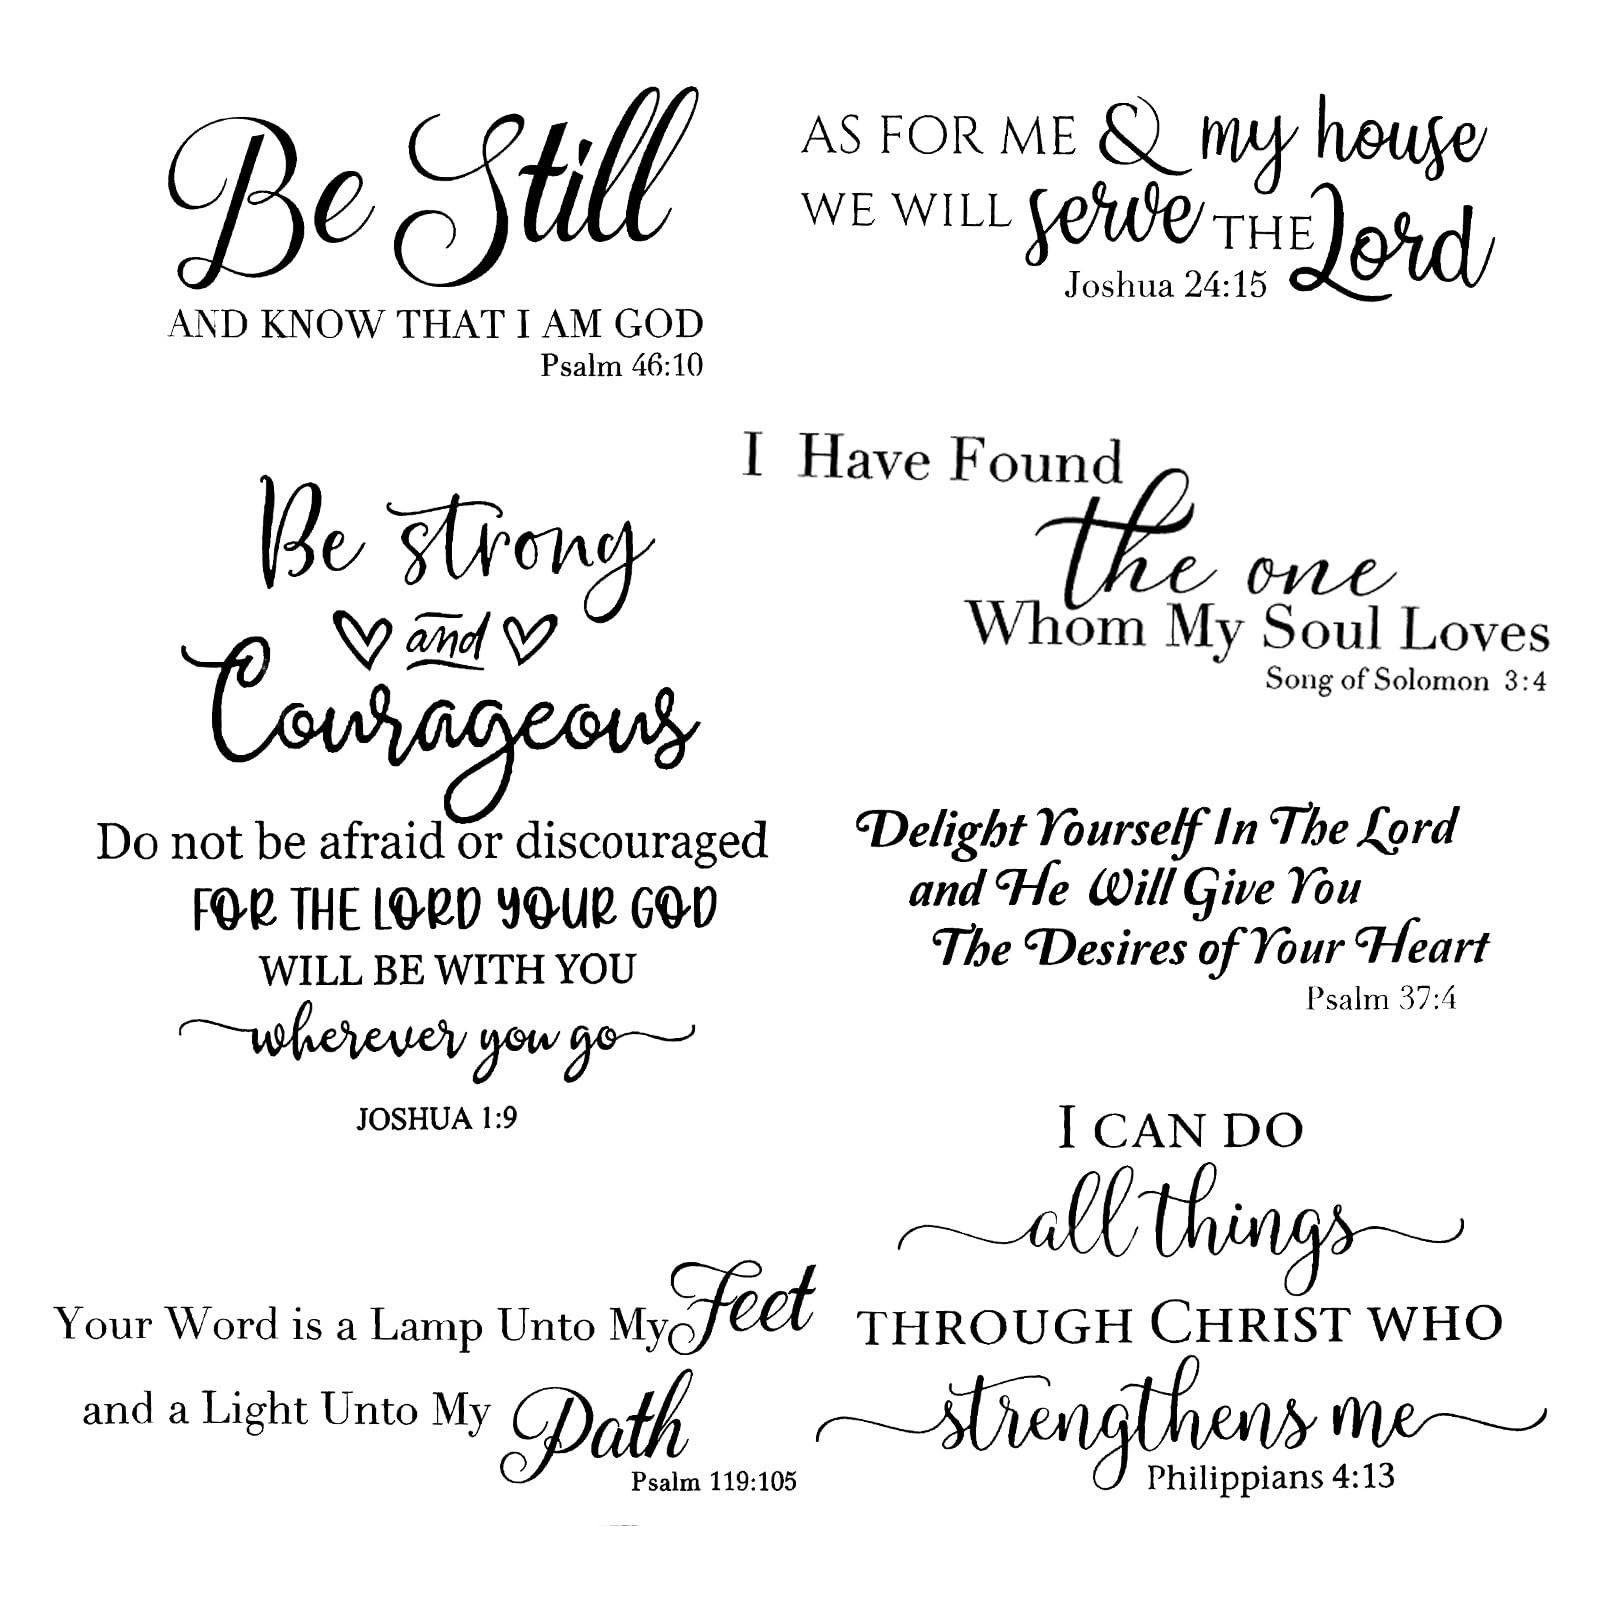 Be Still
AND KNOW THAT I AM GOD
Psalm 46:10
AS FOR ME & my house
WE WILL serve THE Lord
Joshua 24:15
I Have Found
the one
Whom My Soul Loves
Song of Solomon 3:4
Be strong
and
Courageous
Do not be afraid or discouraged
FOR THE LORD YOUR GOD
WILL BE WITH YOU
wherever you go
JOSHUA 1:9
Delight Yourself In The Lord
and He Will Give You
The Desires of Your Heart
Psalm 37:4
I CAN DO
all things
THROUGH CHRIST WHO
strengthens me
Philippians 4:13
Your Word is a Lamp Unto My Feet
and a Light Unto My Path
Psalm 119:105